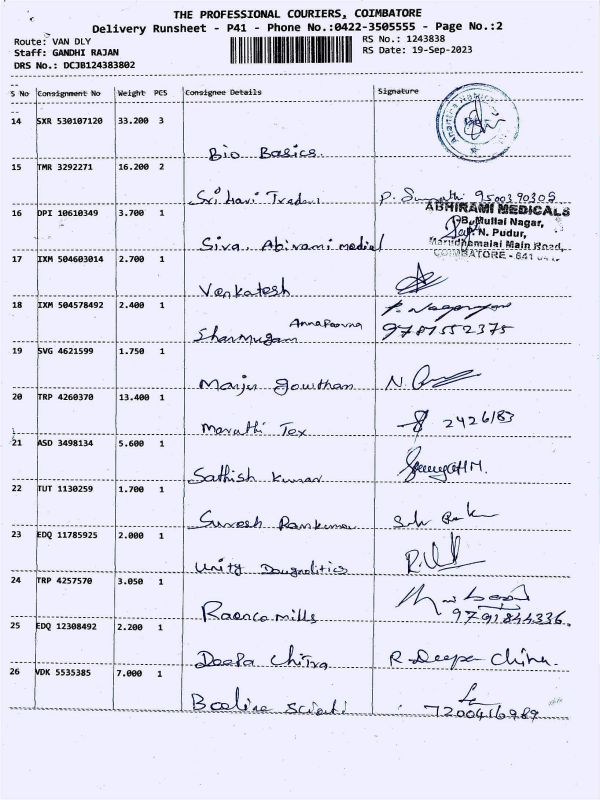 THE PROFESSIONAL COURIERS, COIMBATORE
Delivery Runsheet - P41 - Phone No.:0422-3505555 - Page No.:2
Route: VAN DLY
Staff: GANDHI RAJAN
DRS No.: DCJB124383802
RS No.: 1243838
RS Date: 19-Sep-2023
S No Consignment No Weight PCS Consignee Details Signature
14 SXR 530107120 33.200 3
Bio Basics.
15 TMR 3292271 16.200 2
Sri Hari Traders
16 DPI 10610349 3.700 1
ABHIRAMI MEDICALS
Mullai Nagar,
P.N. Pudur,
Marudhamalai Main Road,
COIMBATORE - 641
Siva. Abirami medical
17 IXM 504603014 2.700 1
Venkatesh
18 IXM 504578492 2.400 1
Annapoorna
Shanmugam 9781552375
19 SVG 4621599 1.750 1
Gowtham N.
20 TRP 4260370 13.400 1
Maruthi Tex 2426183
21 ASD 3498134 5.600 1
Sathish Kumar
22 TUT 1130259 1.700 1
Suresh Ramkumar
23 EDQ 11785925 2.000 1
Unity
24 TRP 4257570 3.050 1
mills 9791844336.
25 EDQ 12308492 2.200 1
Deepa Chitra R. Deepa Chitra.
26 VDK 5535385 7.000 1
7200416989